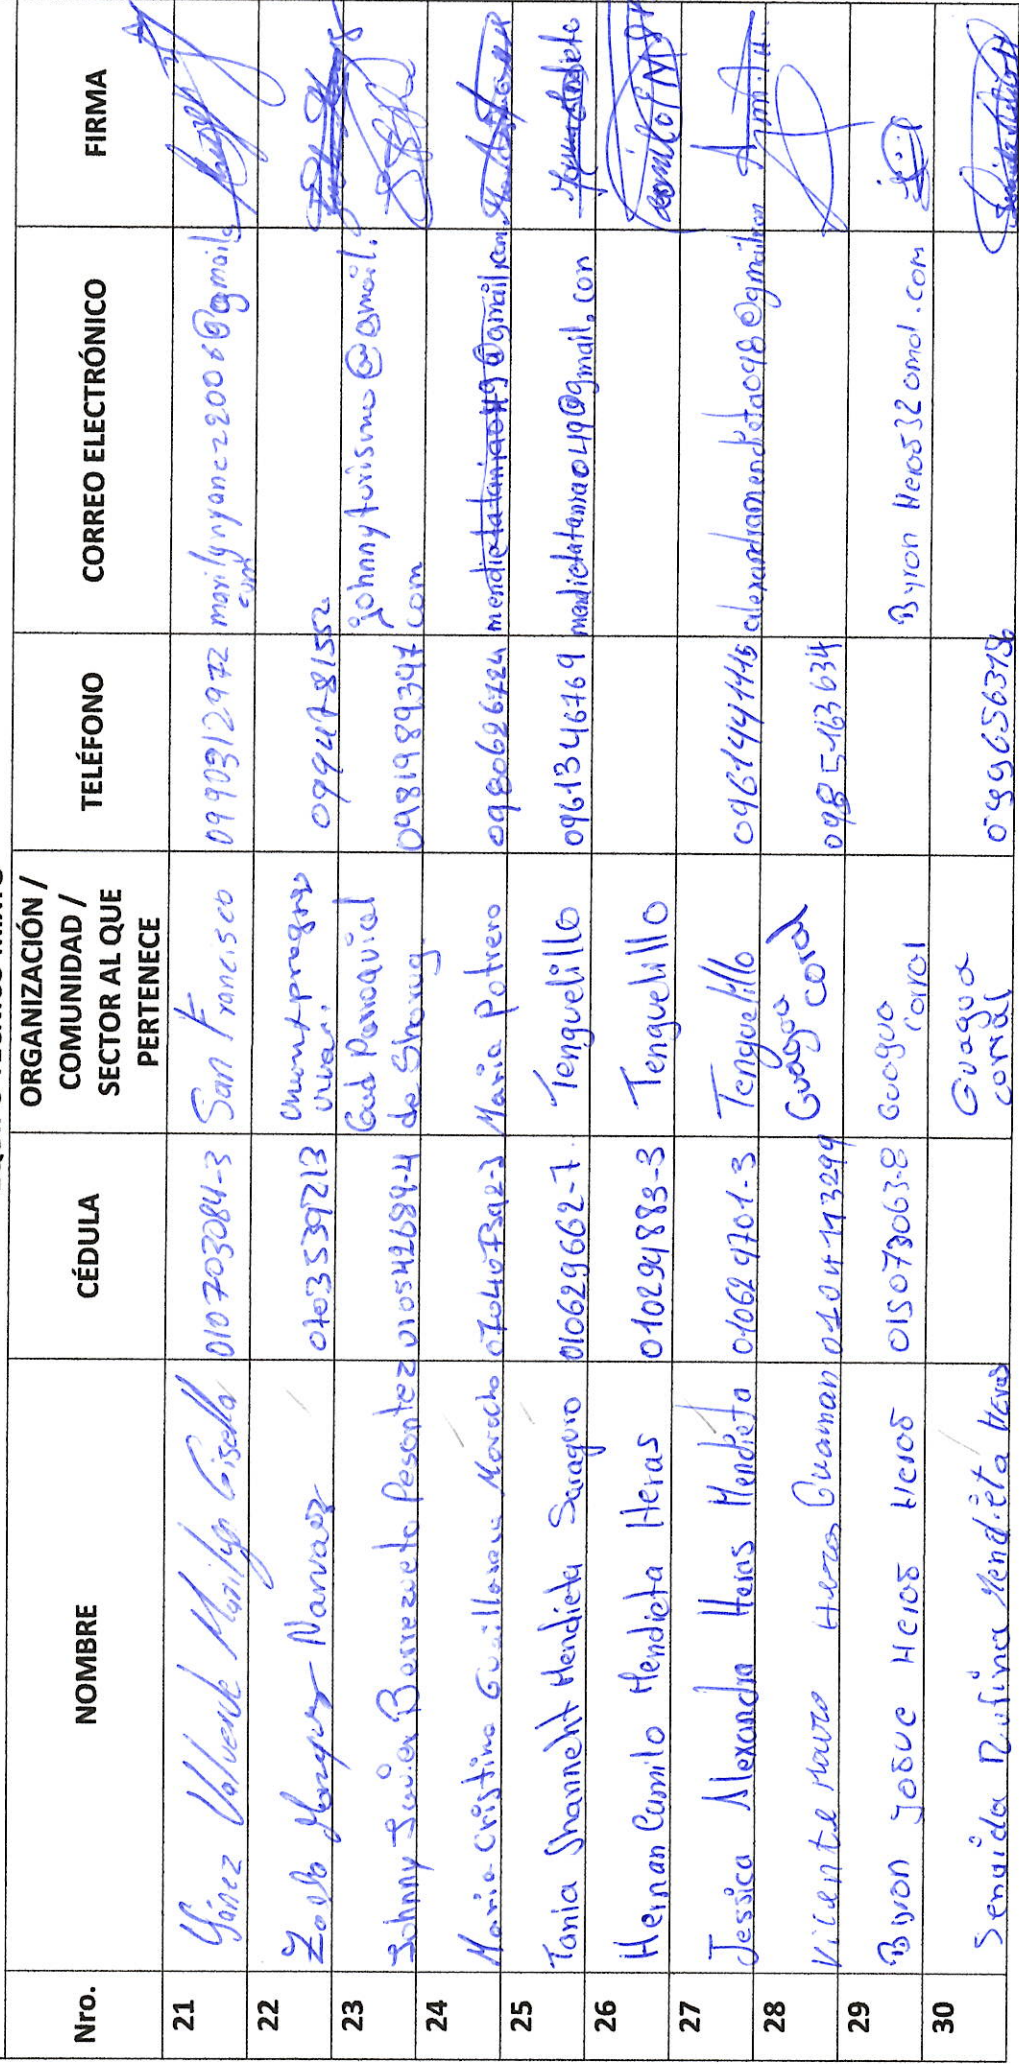 Nro. NOMBRE CÉDULA ORGANIZACIÓN / COMUNIDAD / SECTOR AL QUE PERTENECE TELÉFONO CORREO ELECTRÓNICO FIRMA
21 Yánez Valverde Marilyn Gisella 010703084-3 San Francisco 0990312972 marilynyanez2006@gmail.com
22 Narvaez 0103539213 0994781552
23 Johnny Javier Barrezueta Pesantez 010542689-4 Gad Parroquial de Shaug 0981989347 johnnyturismo@gmail.com
24 Maria Cristina Guallasaca Morocho Maria Potrero 0980626724 mendietatania0419@gmail.com
25 Tania Shanneht Mendieta Saraguro 010629662-7 Tenguelillo 0961346769 mendietatania0419@gmail.con
26 Hernan Camilo Mendieta Heras 010294883-3 Tenguelillo
27 Jessica Alexandra Heras Mendieta 010629701-3 Tenguelillo 0961441115 alexandramendieta098@gmail.com
28 Vicente Mauro Heras Guaman Guagua coral 0985163634
29 Byron Josue Heros Heros 015073063-8 Guagua Coral Byron Heros32omol.com
30 Servida Rufina Mendieta Heras Guagua corral